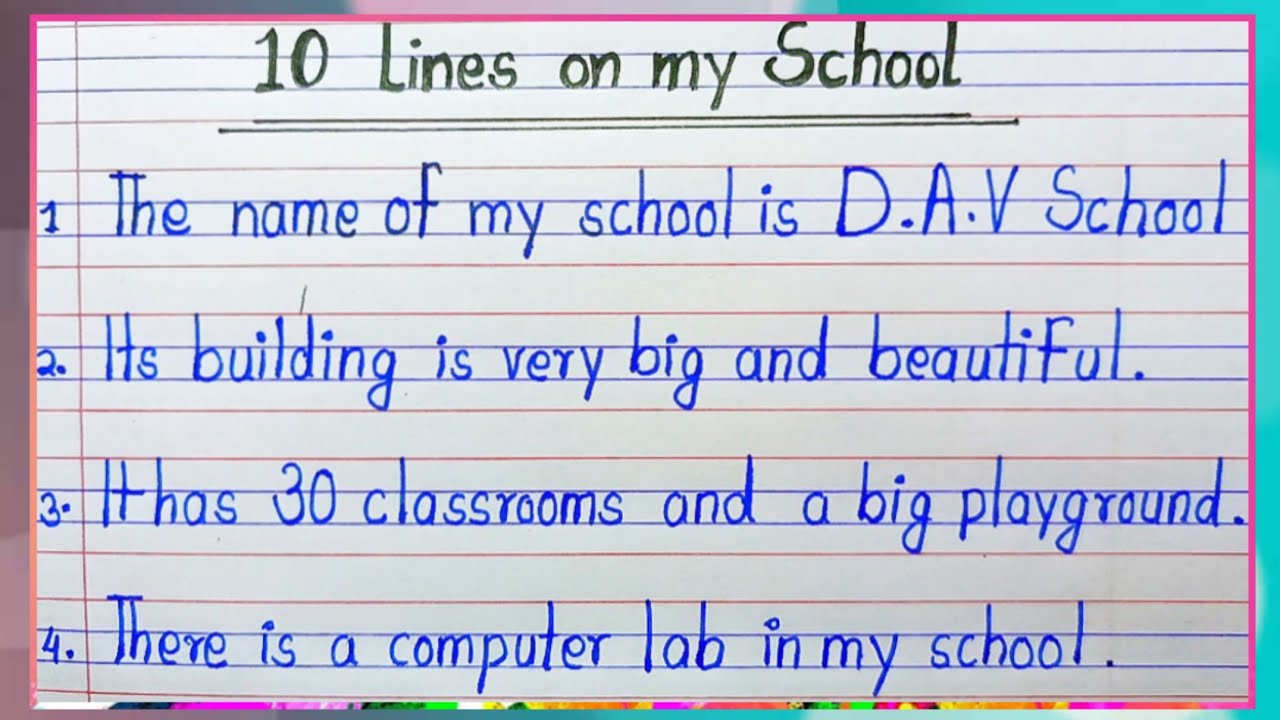 10 Lines on my School
1 The name of my school is D.A.V School
2. Its building is very big and beautiful.
3. It has 30 classrooms and a big playground.
4. There is a computer lab in my school.